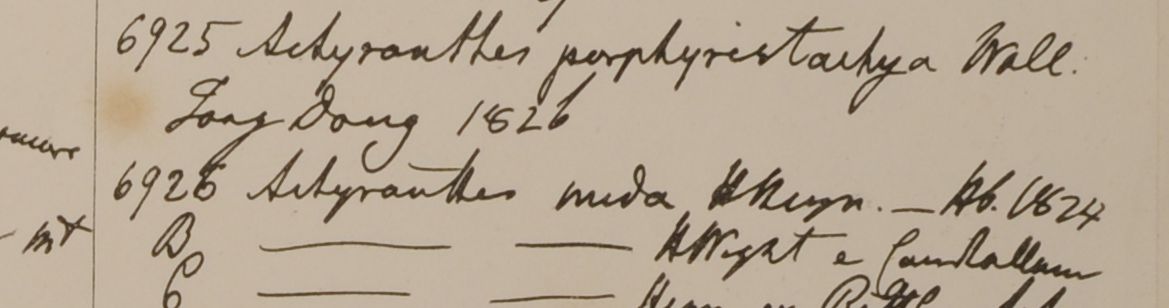 6925 Achyranthes porphyristachya Wall.
Tong Dong 1826
6926 Achyranthes nuda HHeyn. — Hb. 1824
mt B — — HWight e
C — —